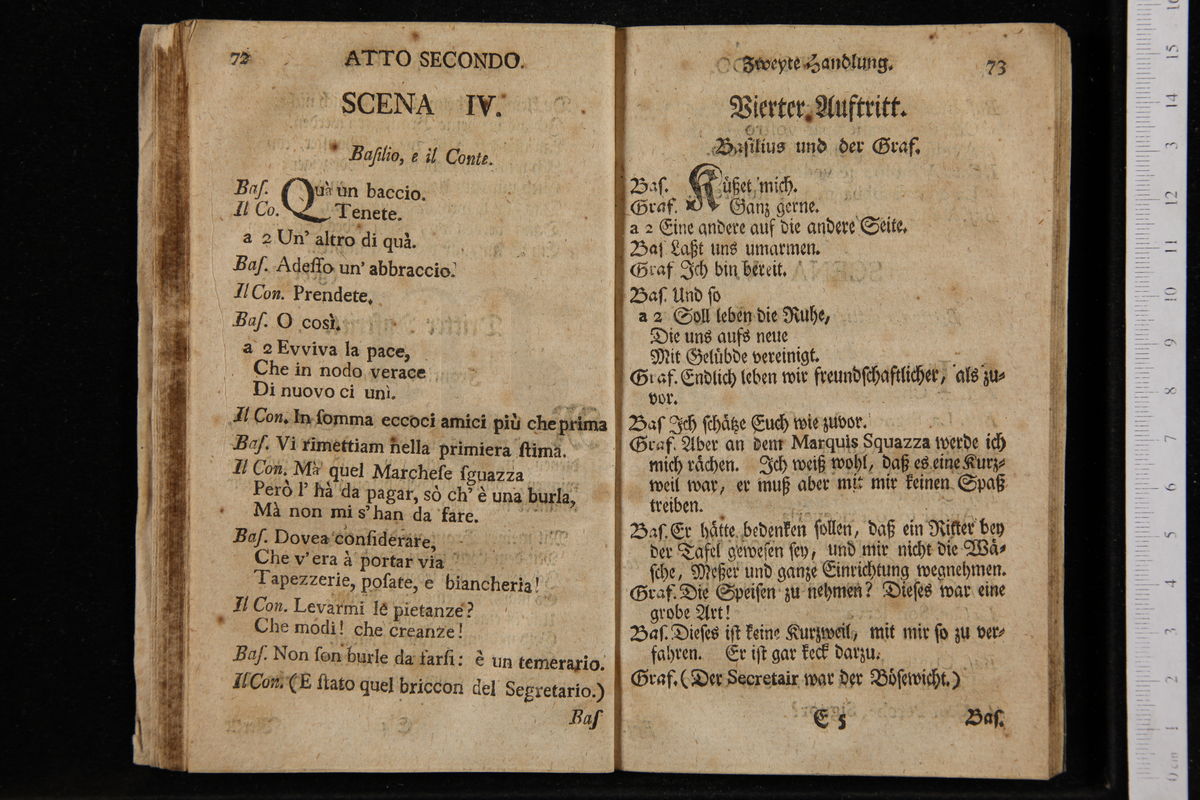 72 ATTO SECONDO.
SCENA IV.
Baſilio, e il Conte.
Baſ. Quà un baccio.
Il Co. Tenete.
a 2 Un' altro di quà.
Baſ. Adeſſo un' abbraccio.
Il Con. Prendete.
Baſ. O così.
a 2 Evviva la pace,
Che in nodo verace
Di nuovo ci unì.
Il Con. In ſomma eccoci amici più che prima
Baſ. Vi rimettiam nella primiera ſtima.
Il Con. Mà quel Marcheſe ſguazza
Però l' hà da pagar, sò ch' è una burla,
Mà non mi s'han da fare.
Baſ. Dovea conſiderare,
Che v'era à portar via
Tapezzerie, poſate, e biancheria!
Il Con. Levarmi le pietanze?
Che modi! che creanze!
Baſ. Non ſon burle da farſi: è un temerario.
Il Con. (E ſtato quel briccon del Segretario.)
Baſ
Zweyte Handlung. 73
Vierter Auftritt.
Baſilius und der Graf.
Baſ. Küßet mich.
Graf. Ganz gerne.
a 2 Eine andere auf die andere Seite.
Baſ Laßt uns umarmen.
Graf Ich bin bereit.
Baſ. Und ſo
a 2 Soll leben die Ruhe,
Die uns aufs neue
Mit Gelübde vereinigt.
Graf. Endlich leben wir freundſchaftlicher, als zu-
vor.
Baſ Ich ſchätze Euch wie zuvor.
Graf. Aber an dem Marquis Squazza werde ich
mich rächen. Ich weiß wohl, daß es eine Kurz-
weil war, er muß aber mit mir keinen Spaß
treiben.
Baſ. Er hätte bedenken ſollen, daß ein Ritter bey
der Tafel geweſen ſey, und mir nicht die Wä-
ſche, Meßer und ganze Einrichtung wegnehmen.
Graf. Die Speiſen zu nehmen? Dieſes war eine
grobe Art!
Baſ. Dieſes iſt keine Kurzweil, mit mir ſo zu ver-
fahren. Er iſt gar keck darzu.
Graf. (Der Secretair war der Böſewicht.)
E 5 Baſ.